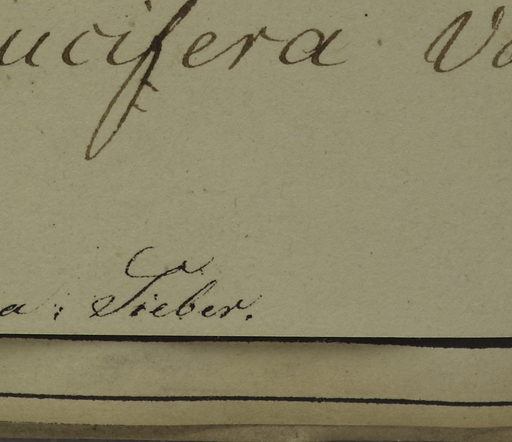 ucifera Va
a: Sieber.